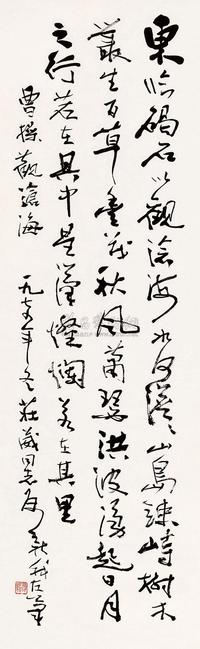 東临碣石以觀滄海水何澹々山島竦峙樹木
叢生百草豐茂秋風蕭瑟洪波湧起日月
之行若在其中星漢燦爛若在其里
曹操觀滄海 一九七五年冬 莊嚴同志屬 新我左筆